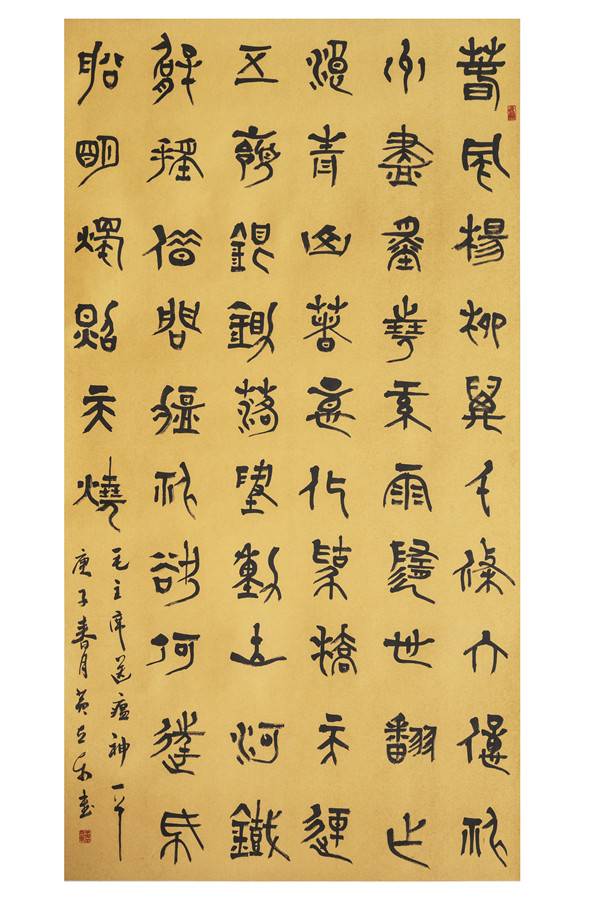 春風楊柳萬千條六億神
州盡舜堯紅雨隨心翻作
浪青山著意化為橋天連
五嶺銀鋤落地動三河鐵
臂搖借問瘟神欲何往紙
船明燭照天燒
毛主席送瘟神一首
庚子春月黄